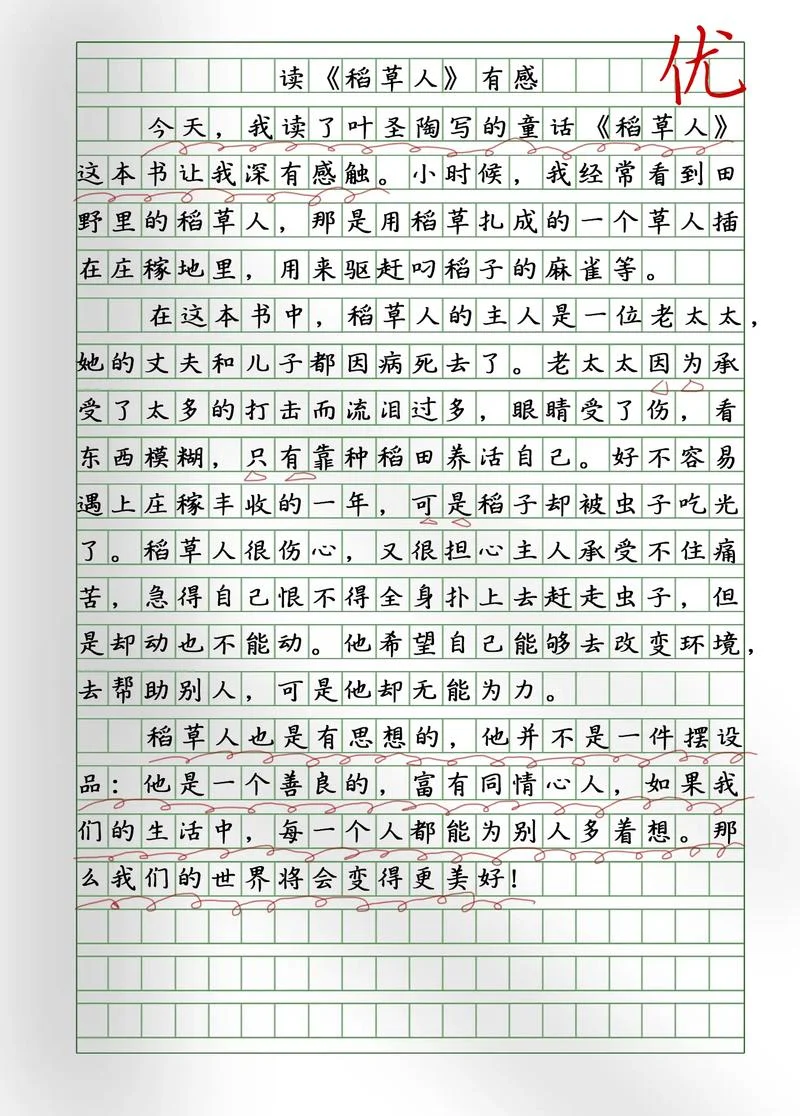 优
读《稻草人》有感
今天，我读了叶圣陶写的童话《稻草人》
这本书让我深有感触。小时候，我经常看到田
野里的稻草人，那是用稻草扎成的一个草人插
在庄稼地里，用来驱赶叼稻子的麻雀等。
在这本书中，稻草人的主人是一位老太太，
她的丈夫和儿子都因病死去了。老太太因为承
受了太多的打击而流泪过多，眼睛受了伤，看
东西模糊，只有靠种稻田养活自己。好不容易
遇上庄稼丰收的一年，可是稻子却被虫子吃光
了。稻草人很伤心，又很担心主人承受不住痛
苦，急得自己恨不得全身扑上去赶走虫子，但
是却动也不能动。他希望自己能够去改变环境，
去帮助别人，可是他却无能为力。
稻草人也是有思想的，他并不是一件摆设
品：他是一个善良的，富有同情心人，如果我
们的生活中，每一个人都能为别人多着想。那
么我们的世界将会变得更美好！